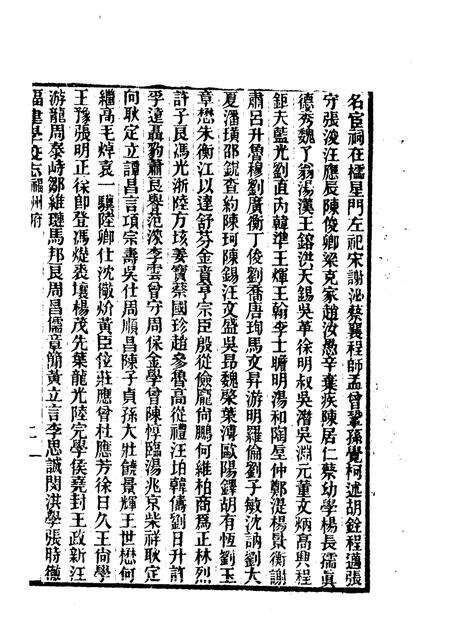 名宦祠在櫺星門左祀宋謝泌蔡襄程師孟曾鞏孫覺柯述胡銓程邁張
守張浚汪應辰陳俊卿梁克家趙汝愚辛棄疾陳居仁蔡幼學楊長孺眞
德秀魏了翁湯漢王鎔洪天錫吳革徐明叔吳潛吳淵元董文炳高興程
鉅夫藍光劉直內韓準王煇王翰李士瞻明湯和陶屋仲鄭湜楊景衡謝
肅呂升魯穆劉廣衡丁俊劉喬唐珣馬文昇游明羅倫劉子敏沈訥劉大
夏潘璜邵銳查約陳珂陳錫汪文盛吳昂魏榮葉溥歐陽鐸胡有恆劉玉
章懋朱衡江以達舒芬金賁亨宗臣殷從儉龐尚鵬何維柏商爲正林烈
計子良馮光浙陸方垓姜寶蔡國珍趙參魯高從禮汪珀韓儁劉日升許
孚遠聶豹蕭良譽范淶李雲曾守周保金學曾陳惇臨湯兆京柴祥耿定
向耿定立譚昌言項宗壽吳仕周順昌陳子貞孫大壯饒景輝王世懋何
繼高毛焯袁一驥陸卿仕沈儆炌黃臣位莊應曾杜應芳徐日久王尚學
王豫張明正徐即登馮爌裘壤楊茂先葉龍光陸完學侯堯封王政新汪
游龍周泰峙鄒維璉馬邦良周昌儒章簡黃立言李思誠閔洪學張時徹
福建學校志福州府